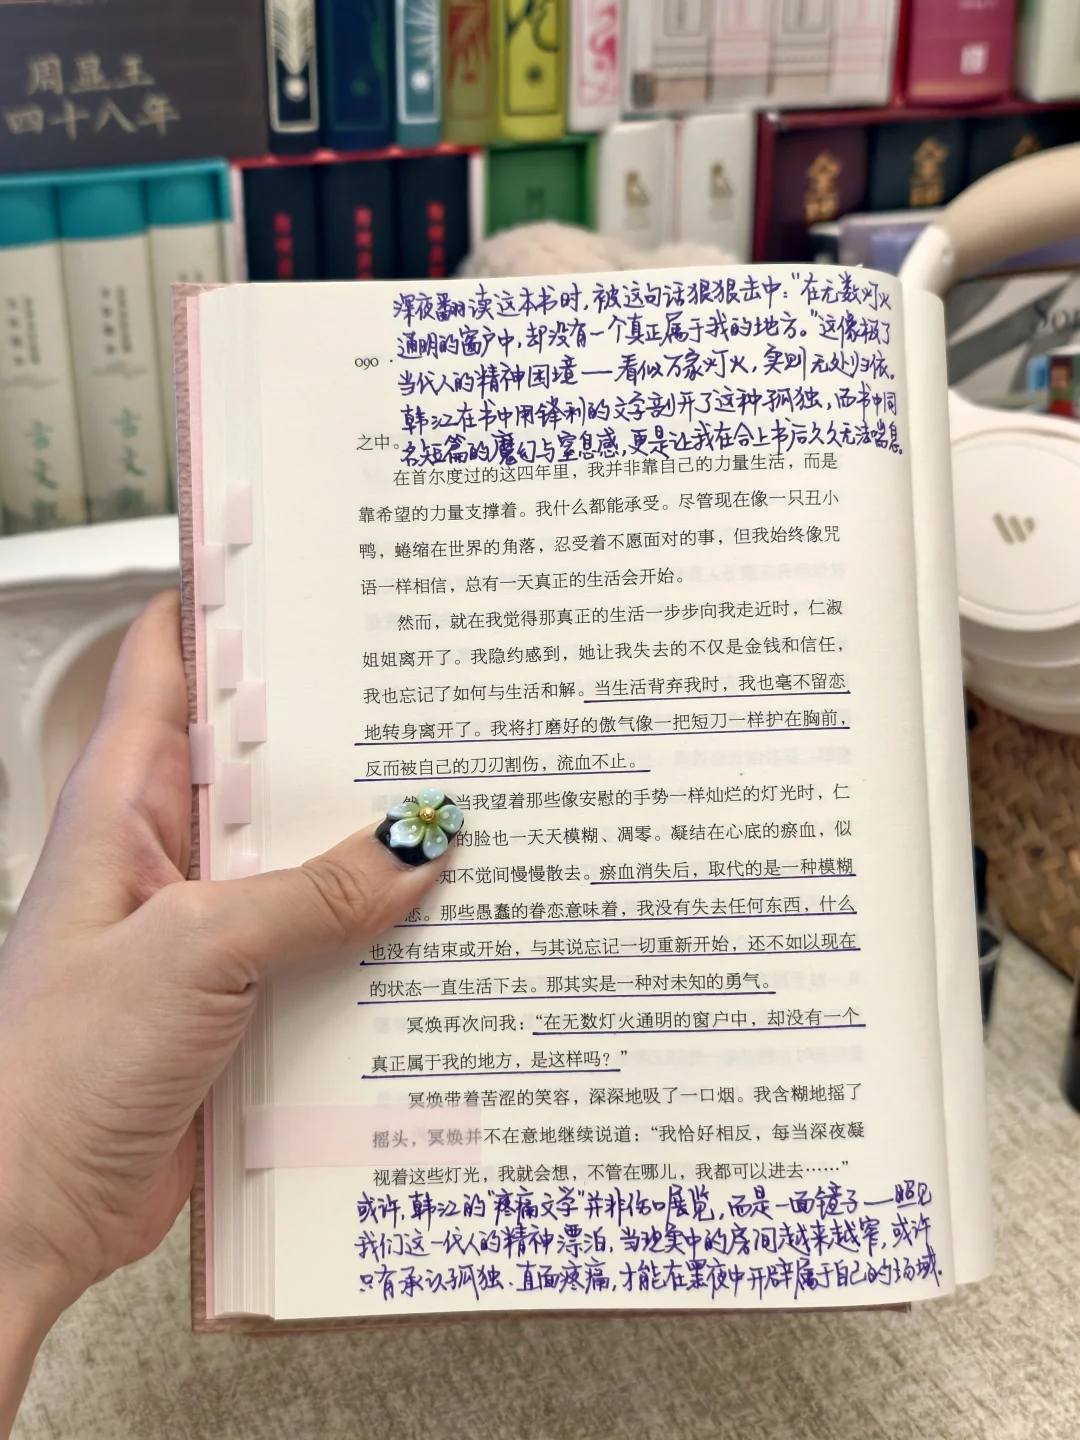 周显王
四十八年
全译
全译
古文
古文
深夜翻读这本书时，被这句话狠狠击中：“在无数灯火
通明的窗户中，却没有一个真正属于我的地方。”这像极了
当代人的精神困境——看似万家灯火，实则无处归依。
韩江在书中用锋利的文字剖开了这种孤独，而书中同
名短篇的魔幻与窒息感，更是让我在合上书后久久无法喘息。
090
之中。
在首尔度过的这四年里，我并非靠自己的力量生活，而是
靠希望的力量支撑着。我什么都能承受。尽管现在像一只丑小
鸭，蜷缩在世界的角落，忍受着不愿面对的事，但我始终像咒
语一样相信，总有一天真正的生活会开始。
然而，就在我觉得那真正的生活一步步向我走近时，仁淑
姐姐离开了。我隐约感到，她让我失去的不仅是金钱和信任，
我也忘记了如何与生活和解。当生活背弃我时，我也毫不留恋
地转身离开了。我将打磨好的傲气像一把短刀一样护在胸前，
反而被自己的刀刃割伤，流血不止。
当我望着那些像安慰的手势一样灿烂的灯光时，仁
的脸也一天天模糊、凋零。凝结在心底的瘀血，似
知不觉间慢慢散去。瘀血消失后，取代的是一种模糊
恋。那些愚蠢的眷恋意味着，我没有失去任何东西，什么
也没有结束或开始，与其说忘记一切重新开始，还不如以现在
的状态一直生活下去。那其实是一种对未知的勇气。
冥焕再次问我：“在无数灯火通明的窗户中，却没有一个
真正属于我的地方，是这样吗？”
冥焕带着苦涩的笑容，深深地吸了一口烟。我含糊地摇了
摇头，冥焕并不在意地继续说道：“我恰好相反，每当深夜凝
视着这些灯光，我就会想，不管在哪儿，我都可以进去……”
或许，韩江的“疼痛文学”并非伤口展览，而是一面镜子——照见
我们这一代人的精神漂泊，当现实中的房间越来越窄，或许
只有承认孤独、直面疼痛，才能在黑夜中开辟属于自己的场域。